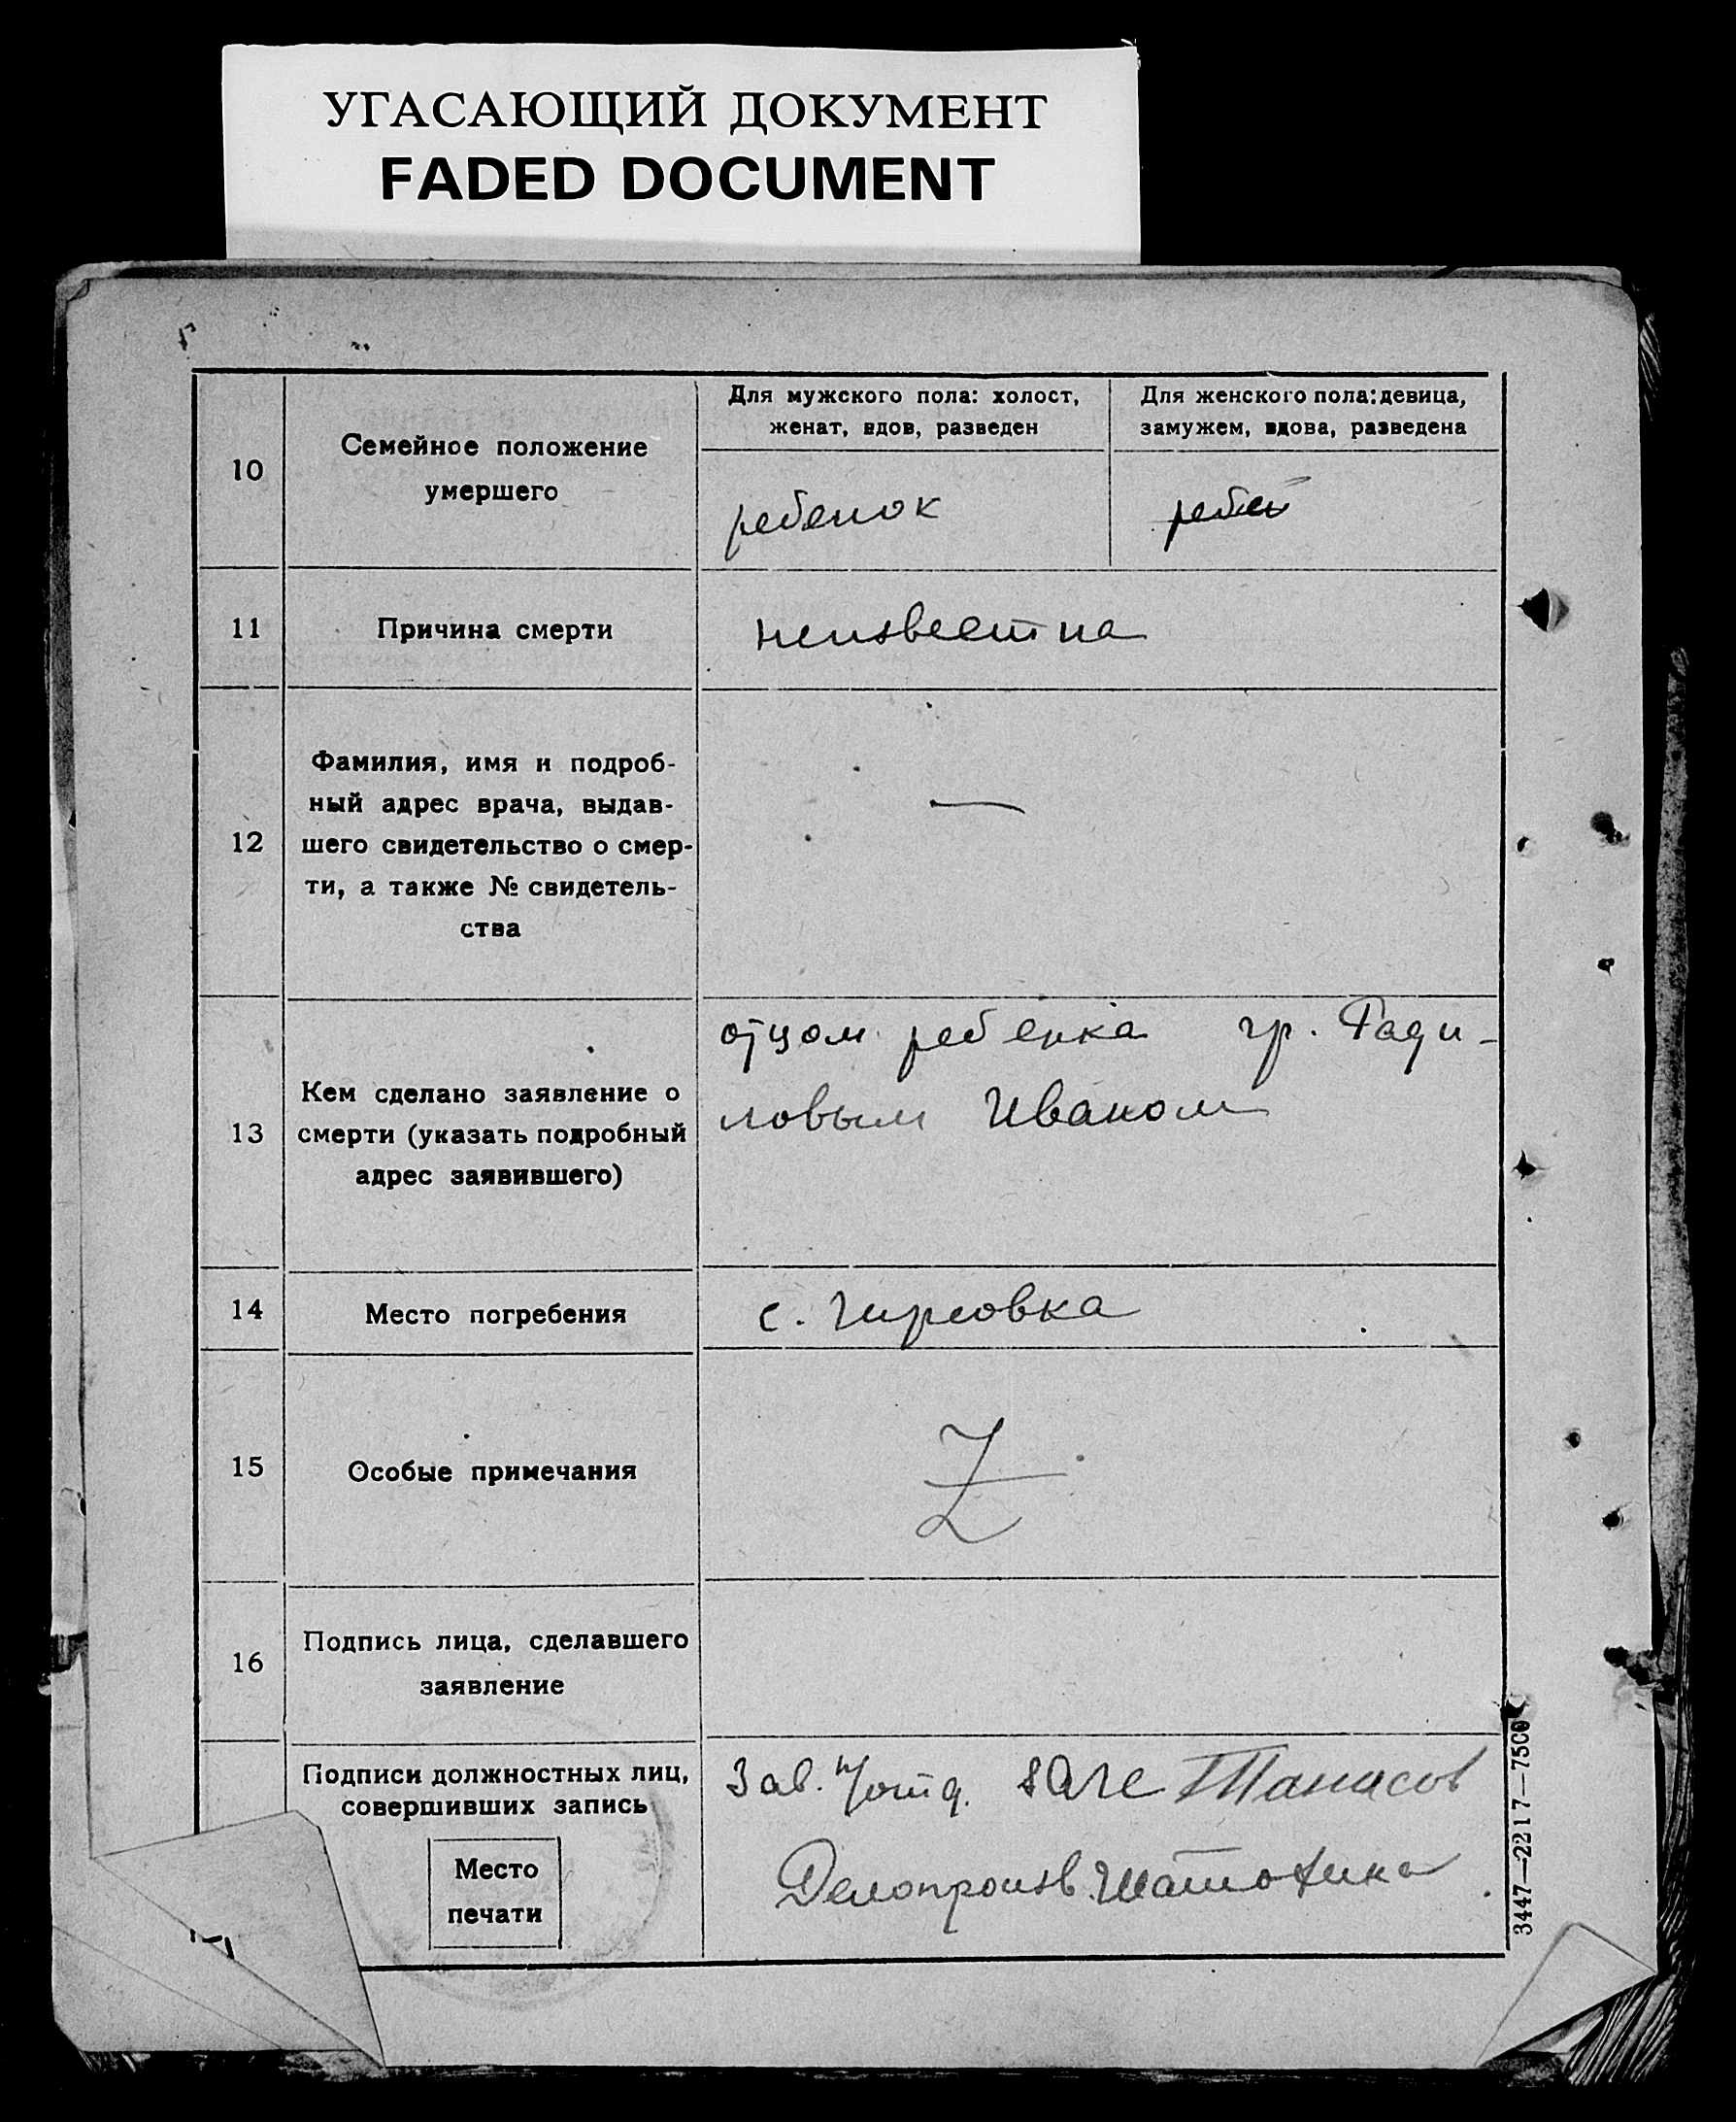 УГАСАЮЩИЙ ДОКУМЕНТ
FADED DOCUMENT
10
Семейное положение
умершего
Для мужского пола: холост,
женат, вдов, разведен
Для женского пола: девица,
замужем, вдова, разведена
ребенок
11
Причина смерти
неизвестна
12
Фамилия, имя и подроб-
ный адрес врача, выдав-
шего свидетельство о смер-
ти, а также № свидетель-
ства
—
13
Кем сделано заявление о
смерти (указать подробный
адрес заявившего)
отцом ребенка гр. Гади-
ловым Иваном
14
Место погребения
с. Чирсовка
15
Особые примечания
Z
16
Подпись лица, сделавшего
заявление
Подписи должностных лиц,
совершивших запись
Место
печати
Зав. ЗАГС Танасов
Делопроизв. Шатохина
3447—2217—7500